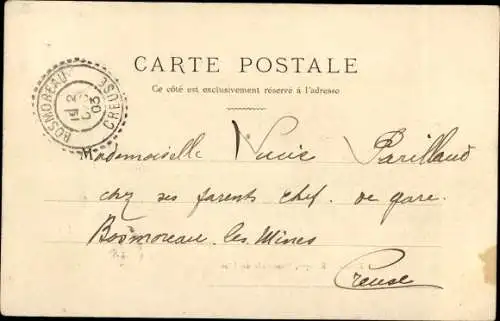 CARTE POSTALE
Ce côté est exclusivement réservé à l'adresse
BOSMOREAU CREUSE
03
Mademoiselle Parillaud
chez ses parents chef. de gare.
Bosmoreau. les. Mines
Creuse